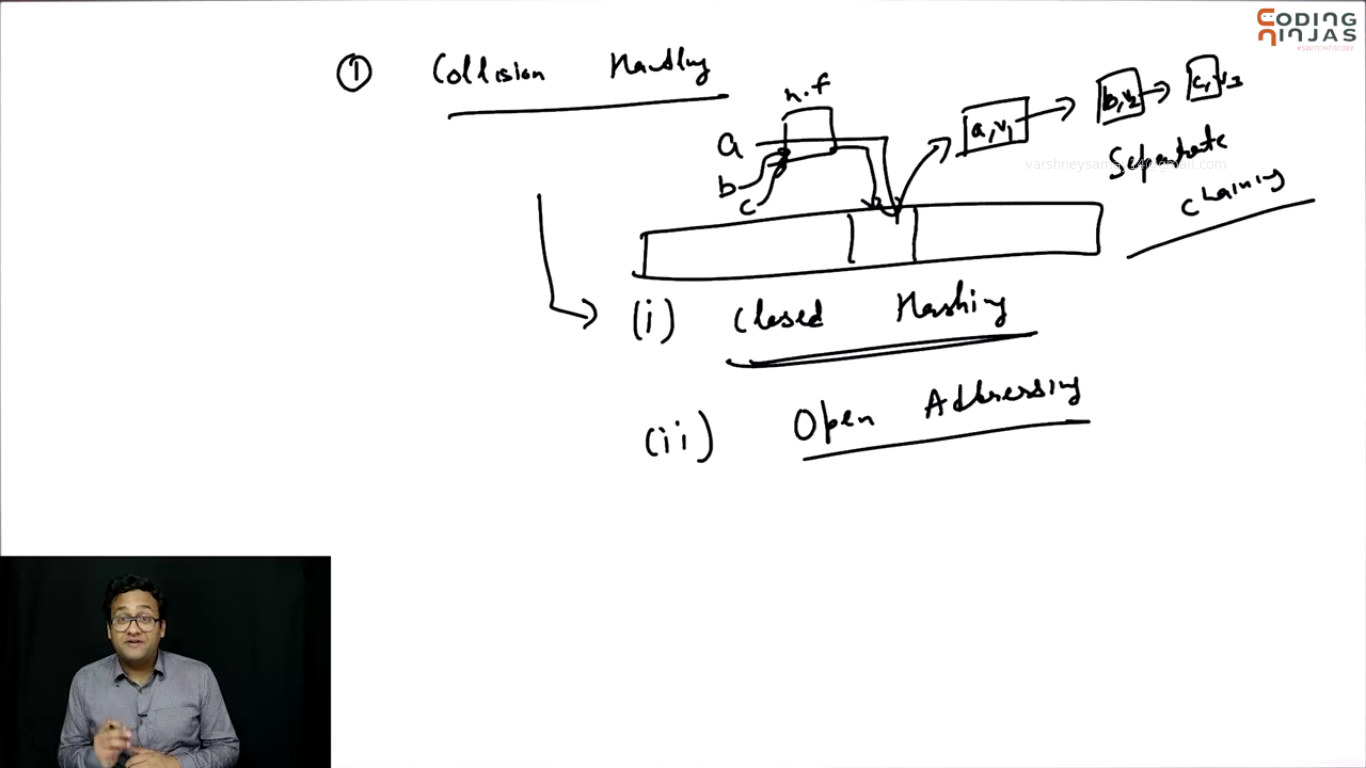 CODING NINJAS
#SWITCHTOCODE
① Collision Handling
h.f
a
b
c
a,v1
b,v2
c,v3
Separate
chaining
(i) Closed Hashing
(ii) Open Addressing